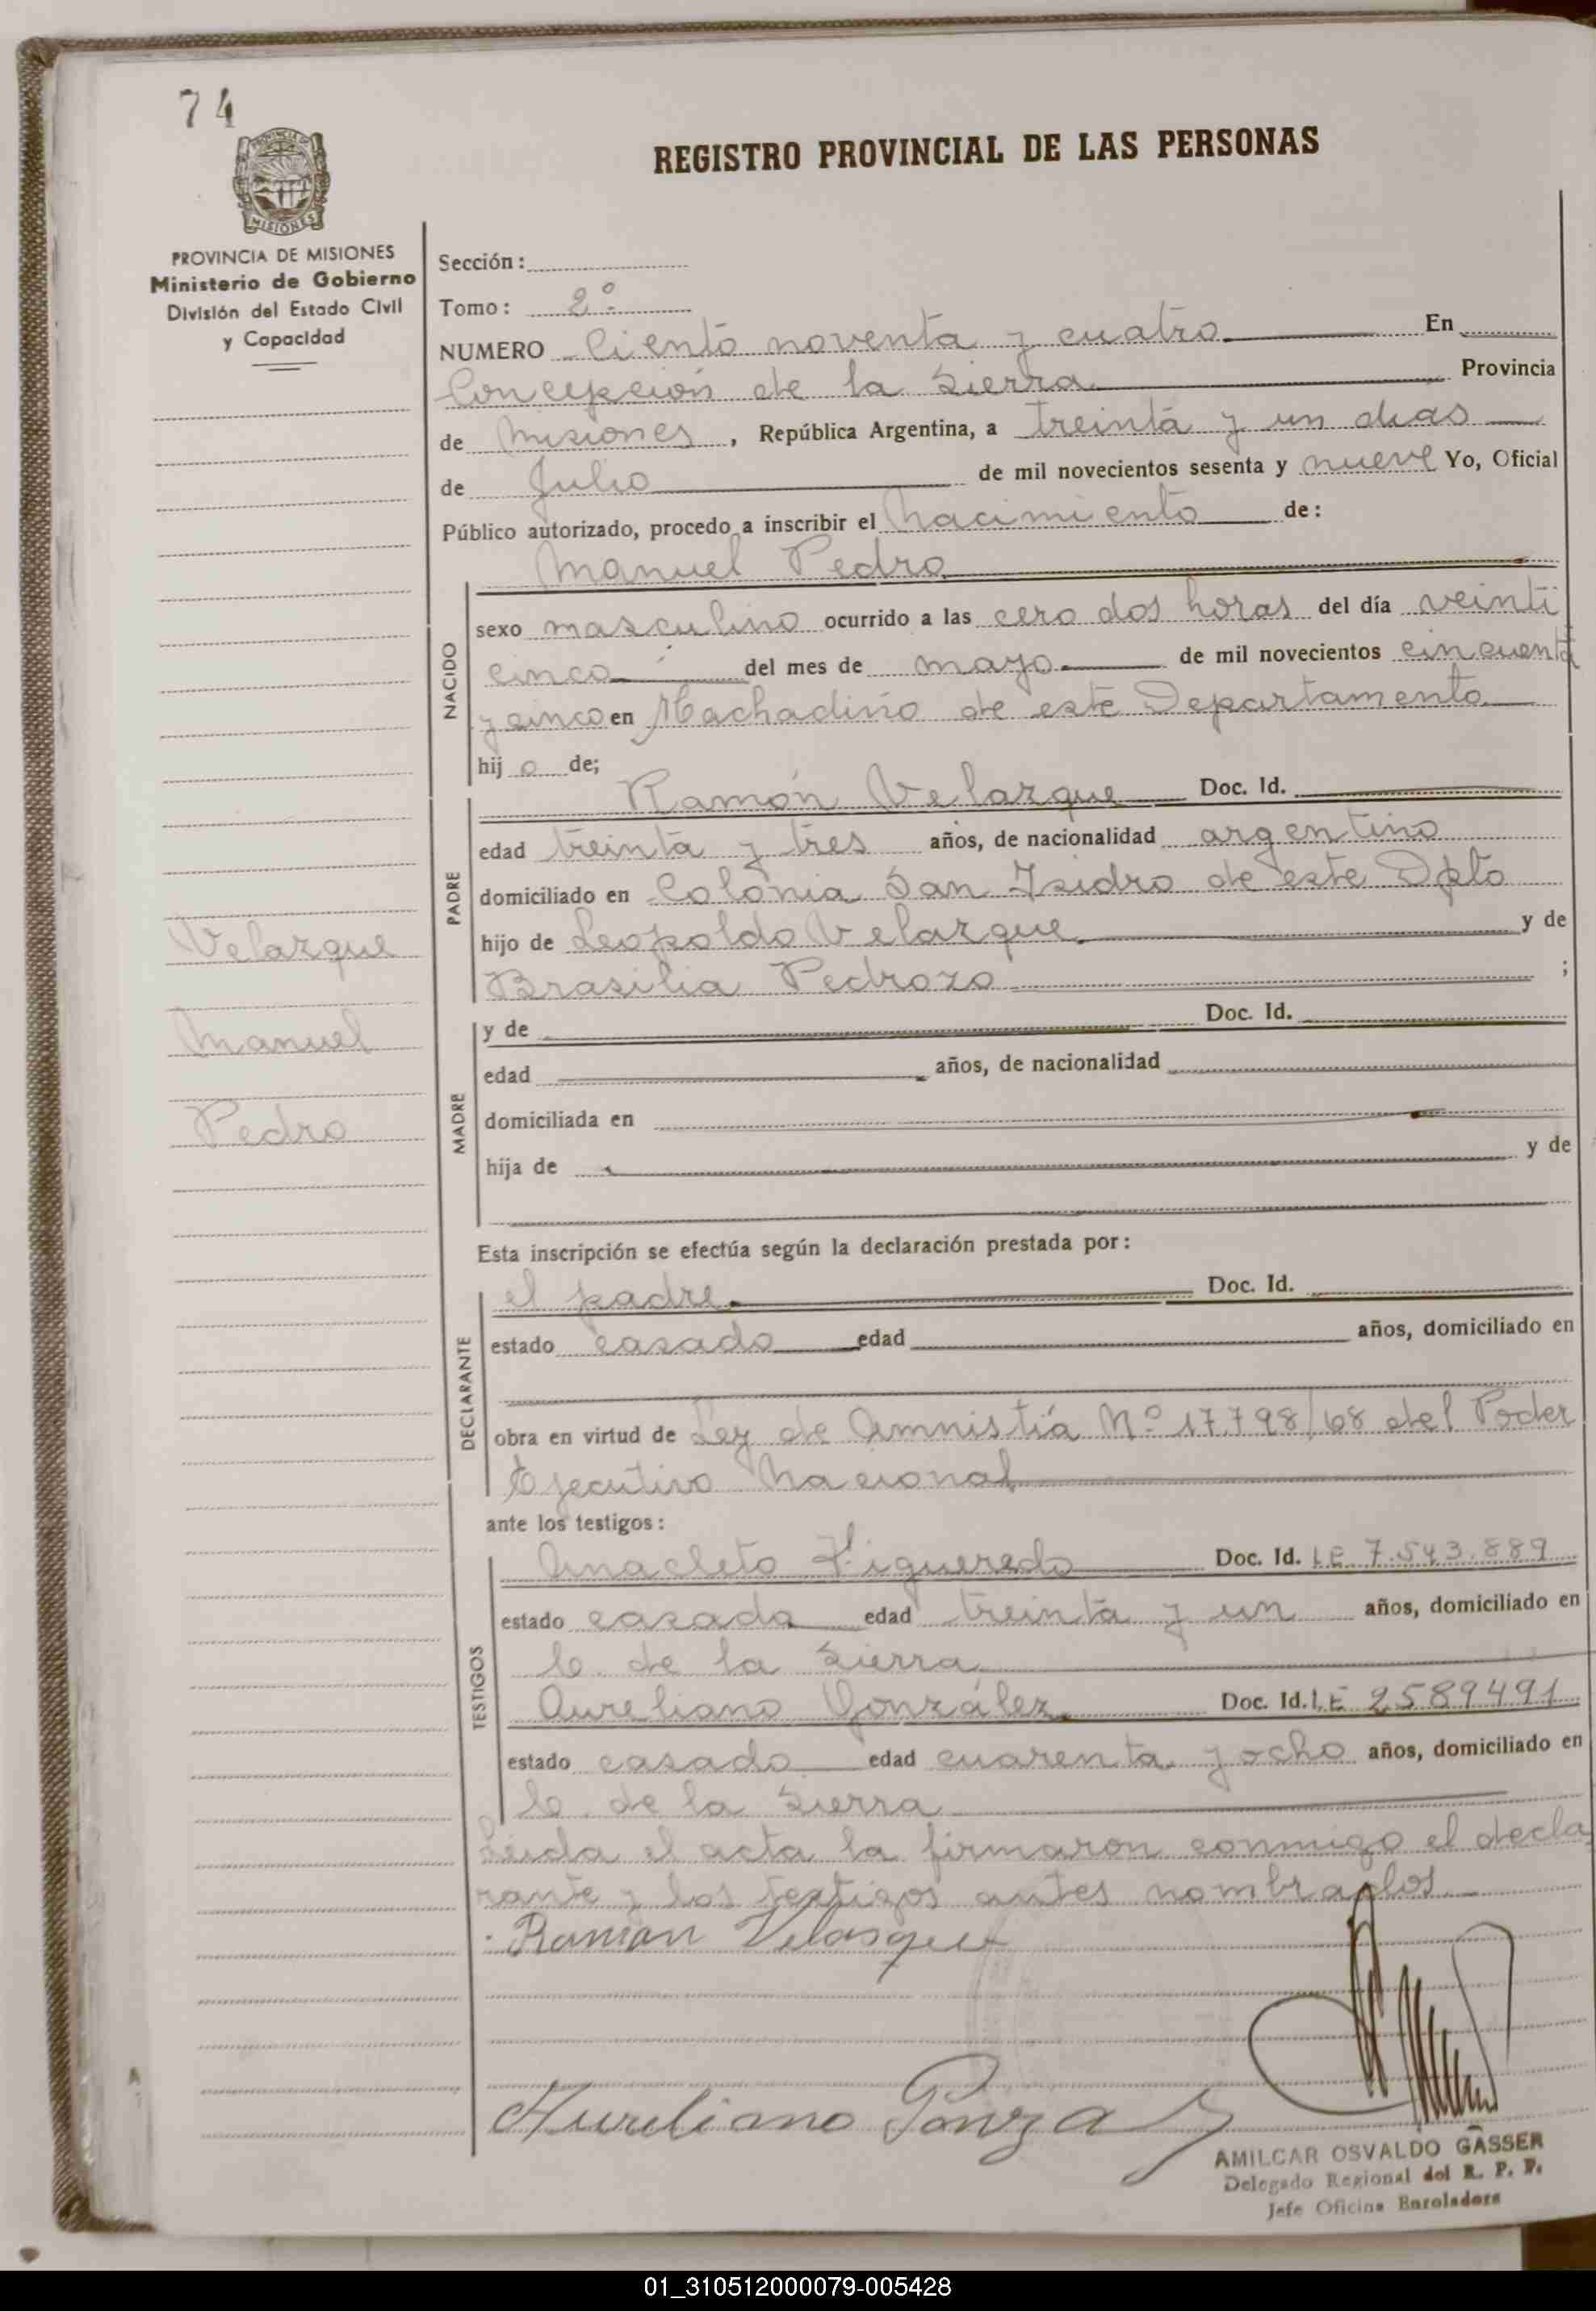 74
REGISTRO PROVINCIAL DE LAS PERSONAS
PROVINCIA DE MISIONES
MISIONES
PROVINCIA DE MISIONES
Ministerio de Gobierno
División del Estado Civil
y Capacidad
Velazque
Manuel
Pedro
Sección:
Tomo: 2º
NUMERO Ciento noventa y cuatro En
Concepción de la Sierra Provincia
de Misiones, República Argentina, a treinta y un dias
de Julio de mil novecientos sesenta y nueve Yo, Oficial
Público autorizado, procedo a inscribir el Nacimiento de:
NACIDO
Manuel Pedro
sexo masculino ocurrido a las cero dos horas del día veinti
cinco del mes de mayo de mil novecientos cincuenta
y cinco en Machadiño de este Departamento
hij o de;
PADRE
Ramón Velazque Doc. Id.
edad treinta y tres años, de nacionalidad argentino
domiciliado en Colonia San Isidro de este Dpto
hijo de Leopoldo Velazque y de
Brasilia Pedrozo ;
MADRE
y de Doc. Id.
edad años, de nacionalidad
domiciliada en
hija de y de
Esta inscripción se efectúa según la declaración prestada por:
DECLARANTE
el padre Doc. Id.
estado casado edad años, domiciliado en
obra en virtud de Ley de Amnistía Nº 17.798/68 del Poder
Ejecutivo Nacional
ante los testigos:
TESTIGOS
Anacleto Figueredo Doc. Id. LE 7.543.889
estado casado edad treinta y un años, domiciliado en
C. de la Sierra
Aureliano González Doc. Id. LE 2589491
estado casado edad cuarenta y ocho años, domiciliado en
C. de la Sierra
Leida el acta la firmaron conmigo el decla
rante y los testigos antes nombrados
Ramón Velasque
Aureliano Gonza
AMILCAR OSVALDO GASSER
Delegado Regional del R. P. P.
Jefe Oficina Enroladora
01_310512000079-005428